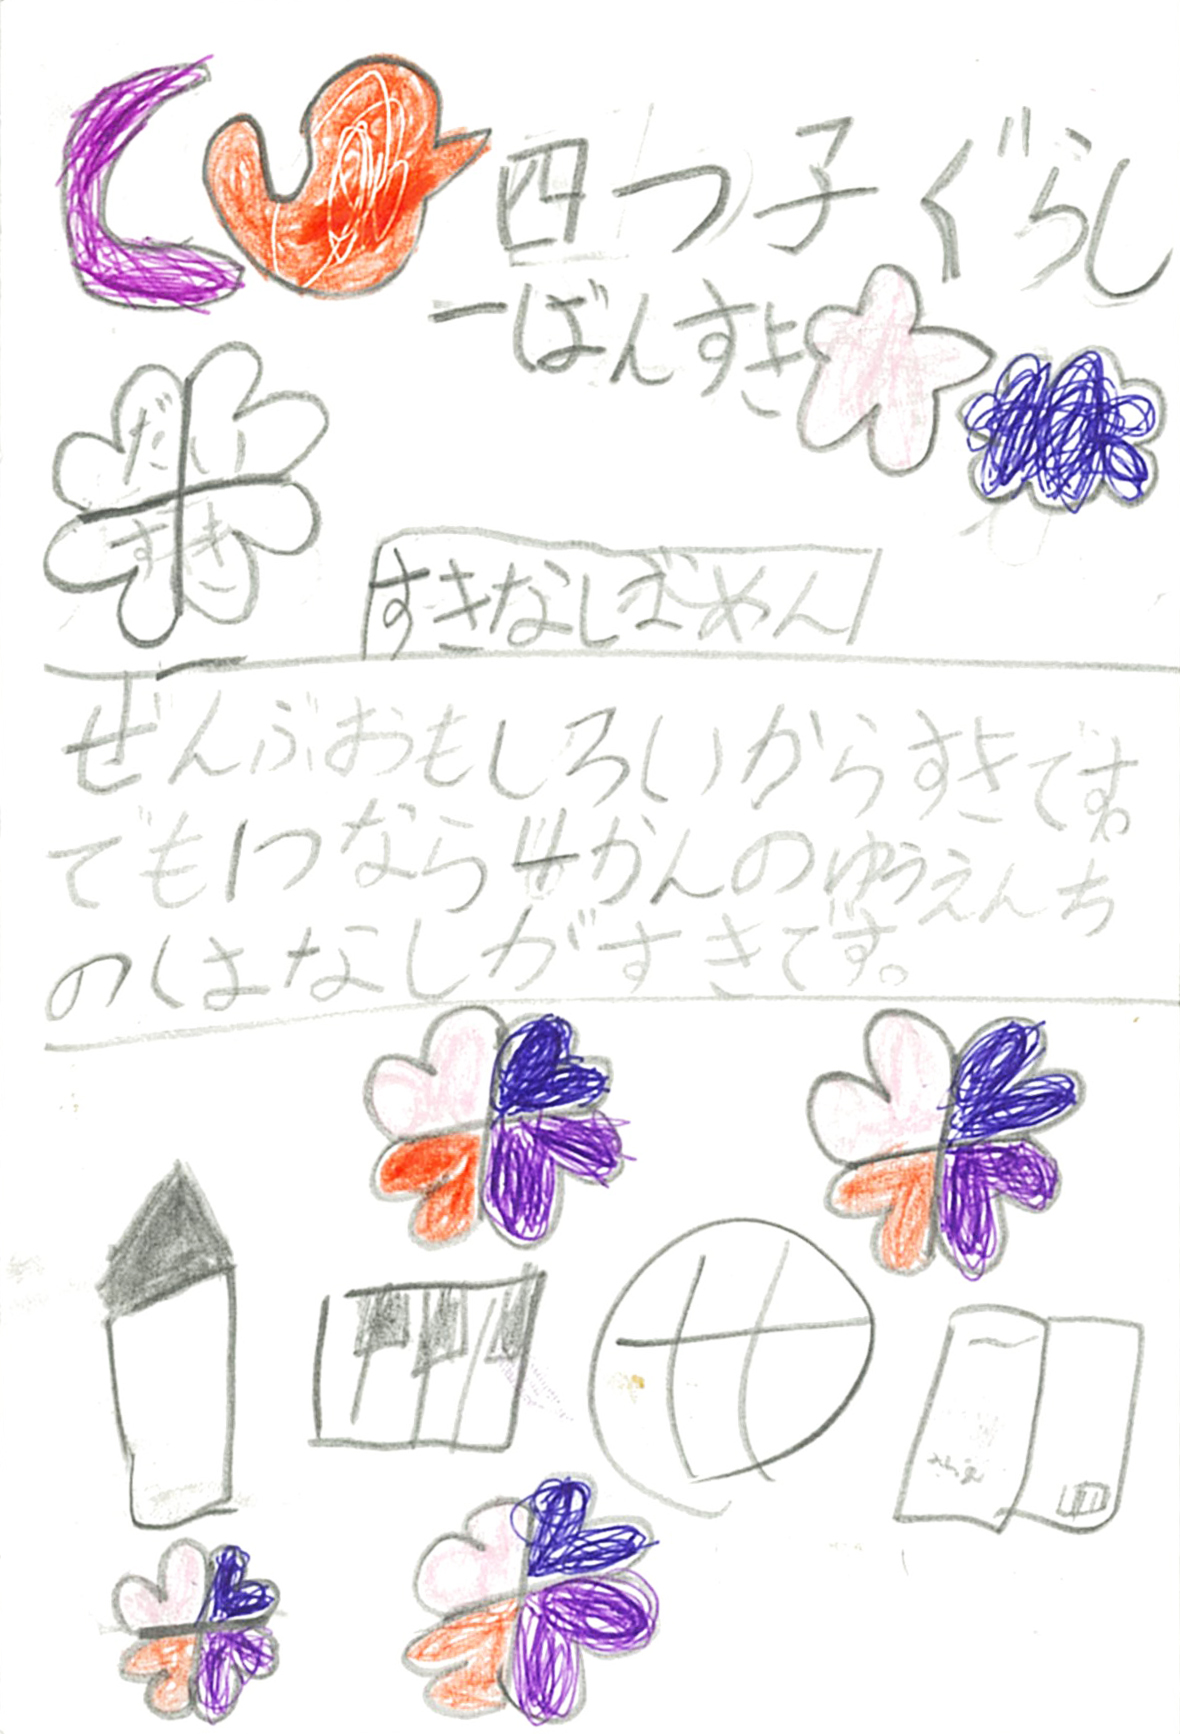 四つ子ぐらし
一ばんすき
だい
すき
すきなしーずめん
ぜんぶおもしろいからすきです。
でも1つなら4かんのゆうえんち
のはなしがすきです。